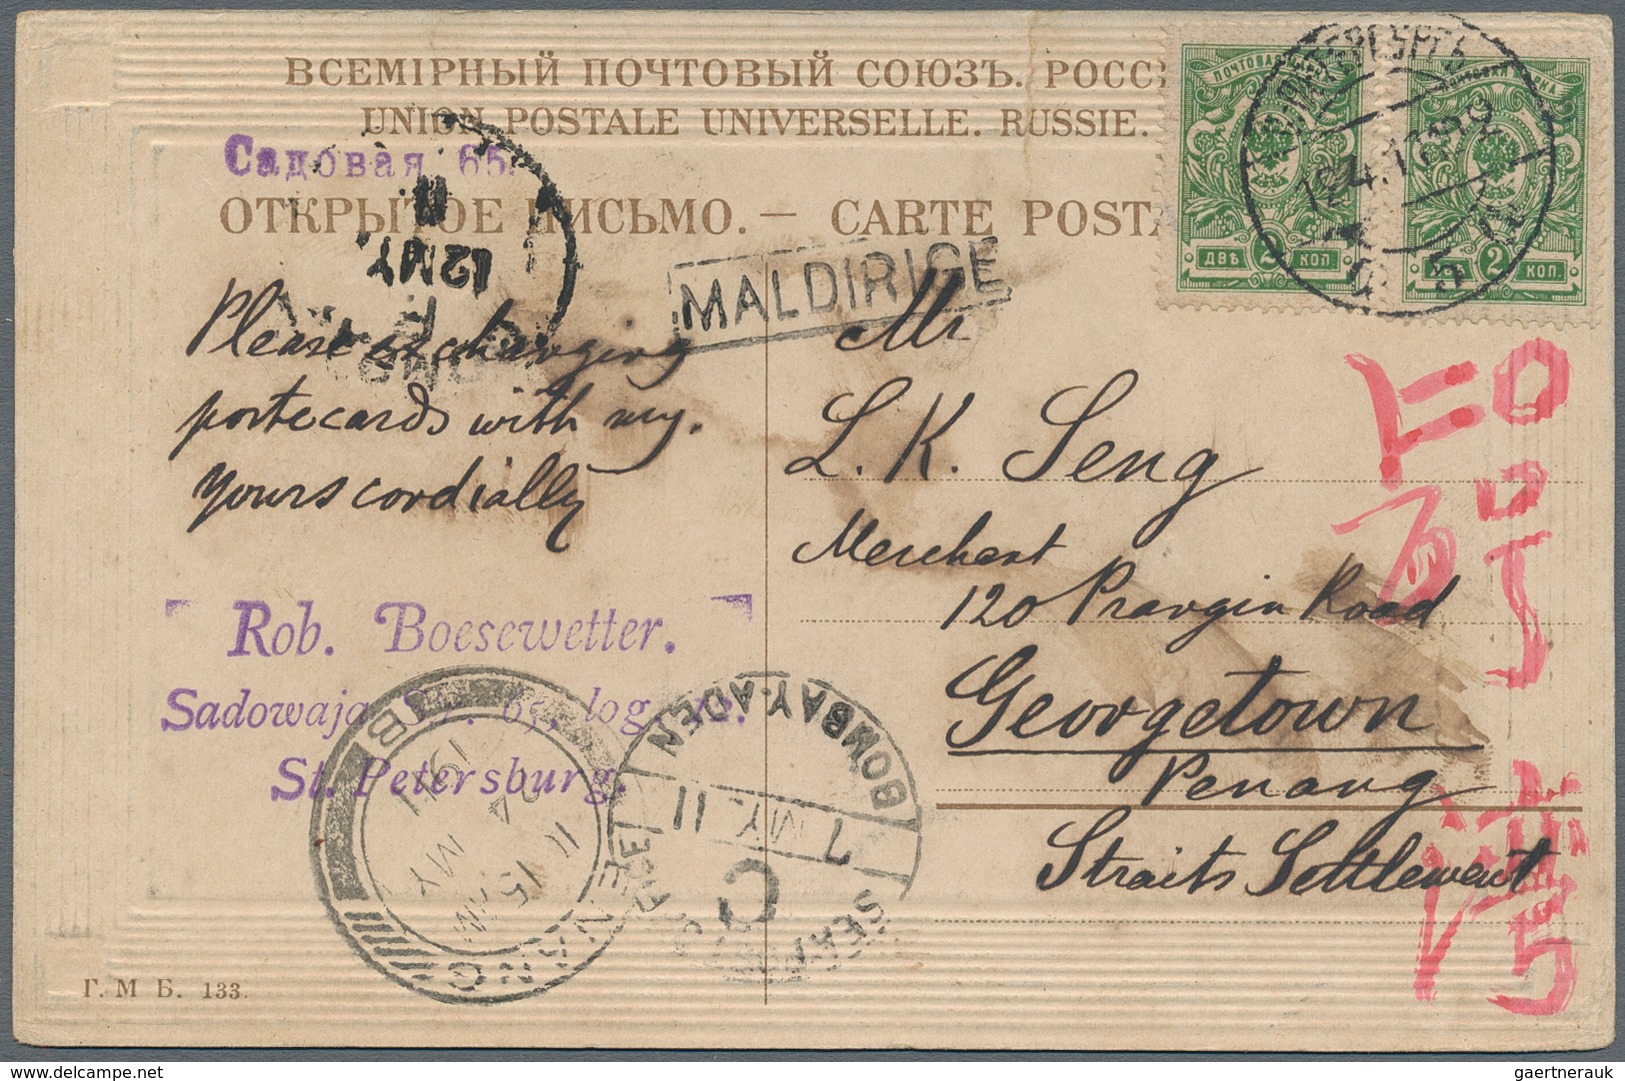 ВСЕМІРНЫЙ ПОЧТОВЫЙ СОЮЗЪ. РОСС
UNION POSTALE UNIVERSELLE. RUSSIE.
Садовая 65.
ОТКРЫТОЕ ПИСЬМО. — CARTE POSTA
ПОЧТОВАЯ
ДВѢ 2 КОП.
2 КОП.
12 MY
MALDIRIGE
Please exchanging
postecards with my.
Yours cordially
Mr
L. K. Seng
Merchant
120 Prangin Road
Georgetown
Penang
Straits Settlement
Rob. Boesewetter.
Sadowaja 65, log.
St. Petersburg.
PENANG
11 15 AM
MY
1911
BOMBAY-ADEN
7 MY. 11
SEA POST OFFICE
C
Г. М Б. 133.
gaertnerauk